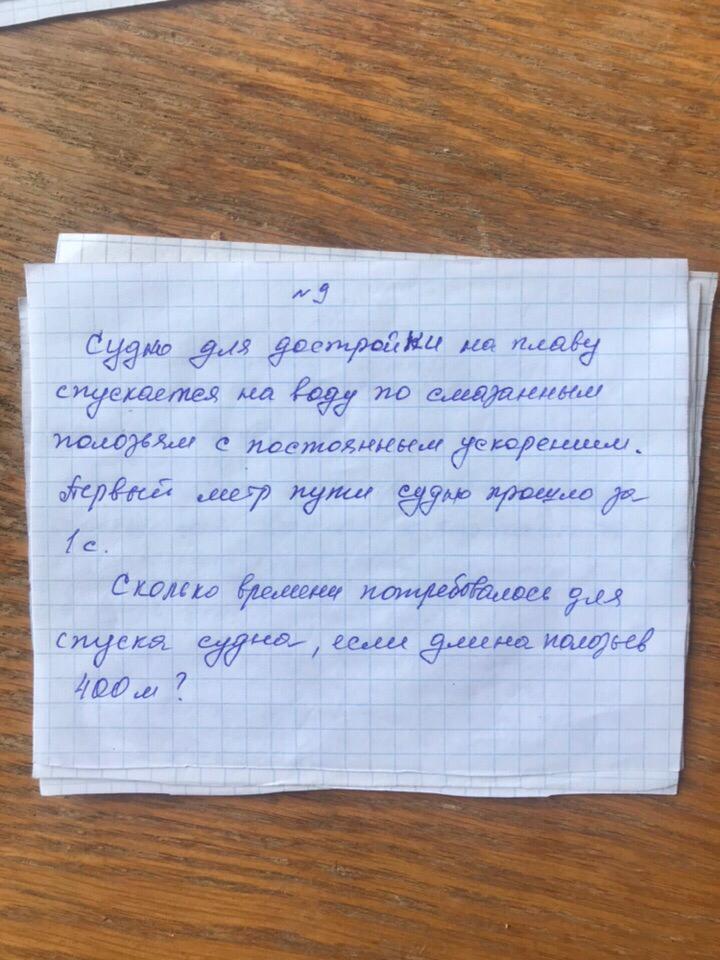 № 9
Судно для достройки на плаву
спускается на воду по смазанным
полозьям с постоянным ускорением.
Первый метр пути судно прошло за
1 с.
Сколько времени потребовалось для
спуска судна, если длина полозьев
400 м?